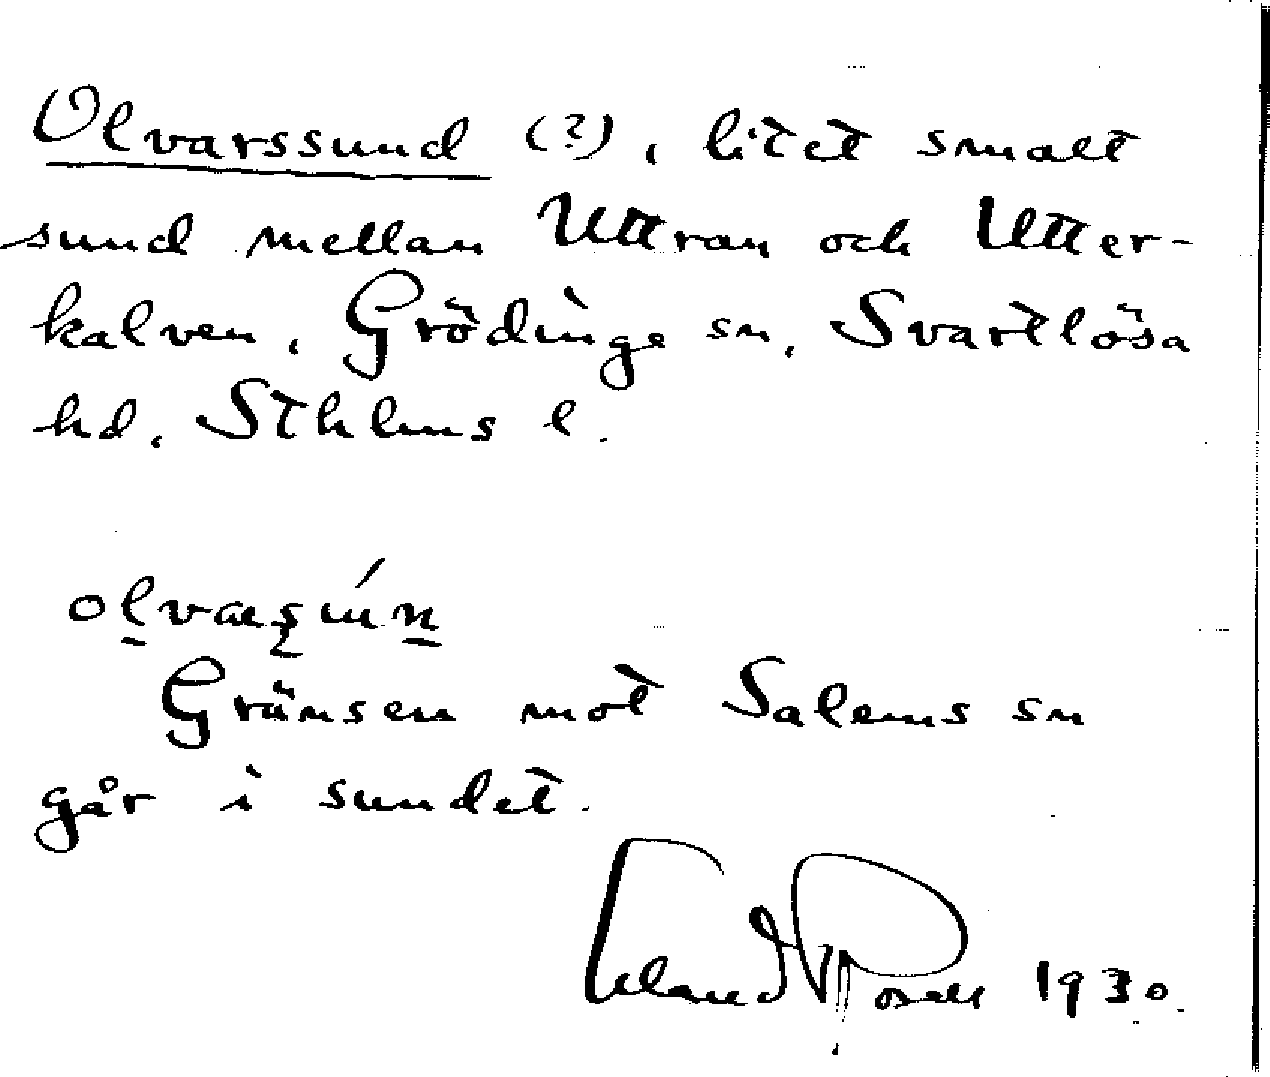 Olvarssund (?), litet smalt
sund mellan Uttran och Utter-
kalven, Grödinge sn, Svartlösa
hd, Sthlms l.
Gränsen mot Salems sn
går i sundet.
Erland Rosell 1930.